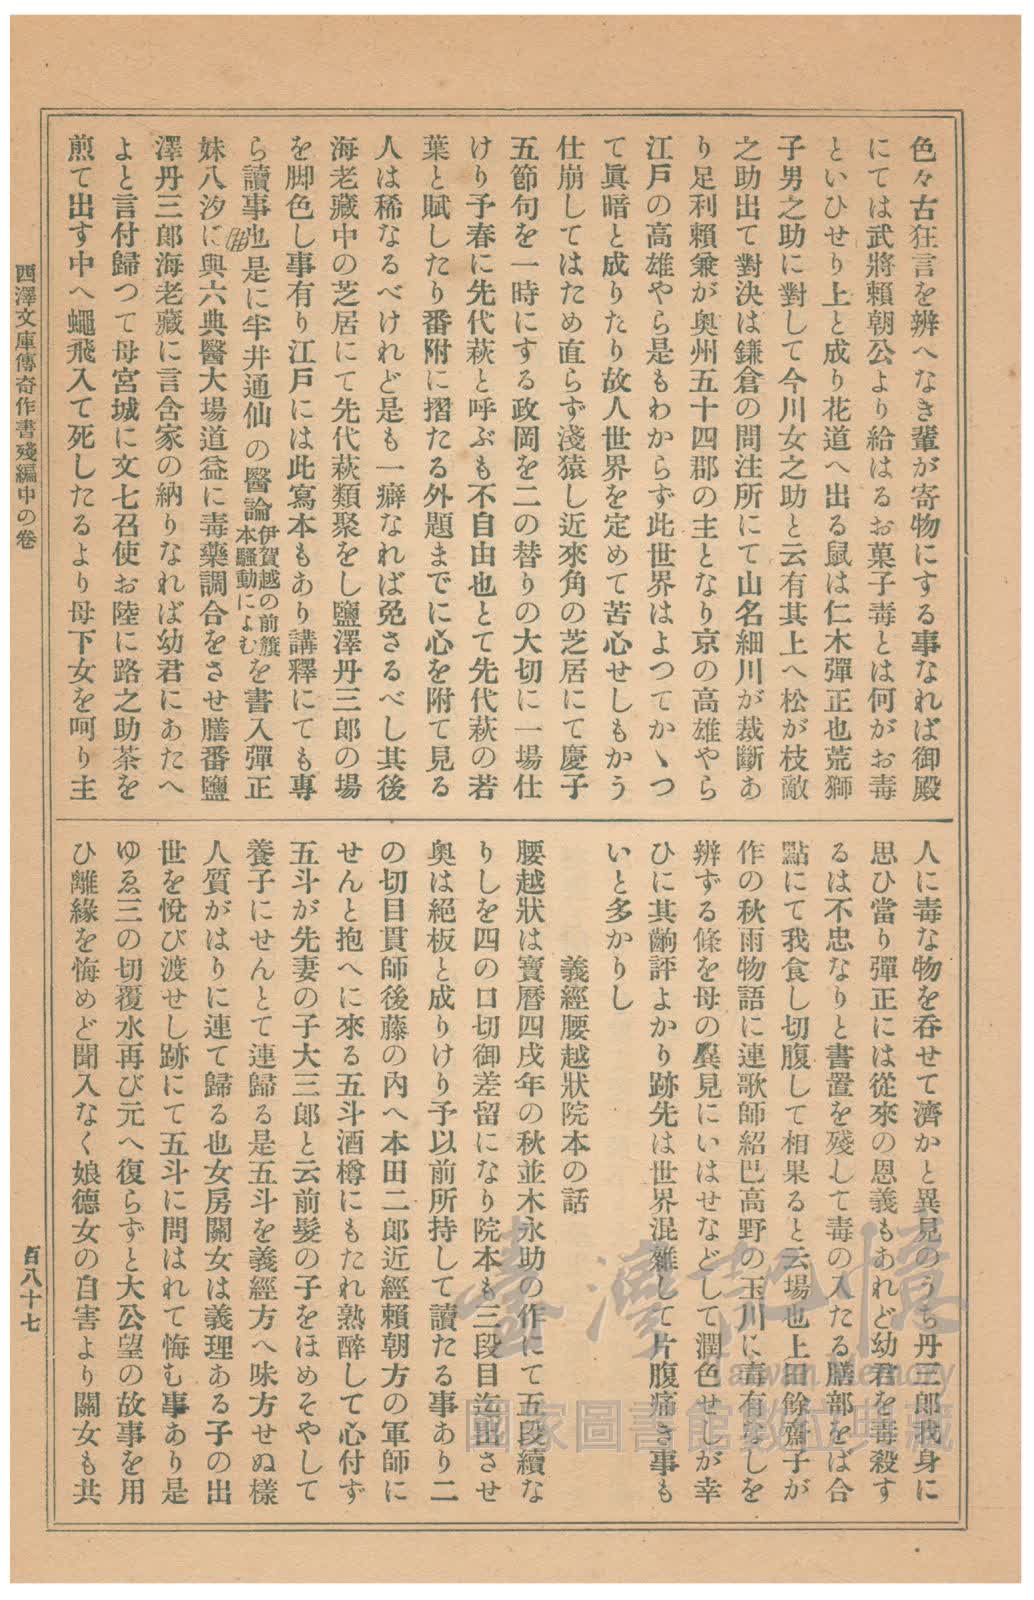 色々古狂言を辨へなき輩が寄物にする事なれば御殿
にては武將賴朝公より給はるお菓子毒とは何がお毒
といひせり上と成り花道へ出る鼠は仁木彈正也荒獅
子男之助に對して今川女之助と云有其上へ松が枝敵
之助出て對決は鎌倉の問注所にて山名細川が裁斷あ
り足利賴兼が奧州五十四郡の主となり京の高雄やら
江戸の高雄やら是もわからず此世界はよつてかゝつ
て眞暗と成りたり故人世界を定めて苦心せしもかう
仕崩してはため直らず淺猿し近來角の芝居にて慶子
五節句を一時にする政岡を二の替りの大切に一場仕
けり予春に先代萩と呼ぶも不自由也とて先代萩の若
葉と賦したり番附に摺たる外題までに心を附て見る
人は稀なるべけれど是も一癖なれば免さるべし其後
海老藏中の芝居にて先代萩類聚をし鹽澤丹三郎の場
を脚色し事有り江戸には此寫本もあり講釋にても專
ら讀事也是に半井通仙の醫論伊賀越の前籏本騷動によむを書入彈正
妹八汐に與六典醫大場道益に毒藥調合をさせ膳番鹽
澤丹三郎海老藏に言含家の納りなれば幼君にあたへ
よと言付歸つて母宮城に文七召使お陸に路之助茶を
煎て出す中へ蠅飛入て死したるより母下女を呵り主
人に毒な物を呑せて濟かと異見のうち丹三郎我身に
思ひ當り彈正には從來の恩義もあれど幼君を毒殺す
るは不忠なりと書置を殘して毒の入たる膳部をば合
點にて我食し切腹して相果ると云場也上田餘齋子が
作の秋雨物語に連歌師紹巴高野の玉川に毒有なしを
辨ずる條を母の異見にいはせなどして潤色せしが幸
ひに其齣評よかり跡先は世界混雜して片腹痛き事も
いと多かりし
義經腰越狀院本の話
腰越狀は寶曆四戌年の秋並木永助の作にて五段續な
りしを四の口切御差留になり院本も三段目迄出させ
奧は絕板と成りけり予以前所持して讀たる事あり二
の切目貫師後藤の内へ本田二郎近經賴朝方の軍師に
せんと抱へに來る五斗酒樽にもたれ熟醉して心付ず
五斗が先妻の子大三郎と云前髮の子をほめそやして
養子にせんとて連歸る是五斗を義經方へ味方せぬ樣
人質がはりに連て歸る也女房關女は義理ある子の出
世を悅び渡せし跡にて五斗に問はれて悔む事あり是
ゆゑ三の切覆水再び元へ復らずと大公望の故事を用
ひ離緣を悔めど聞入なく娘德女の自害より關女も共
西澤文庫傳奇作書殘編中の卷
百八十七
臺灣記憶
Taiwan Memory
國家圖書館數位典藏